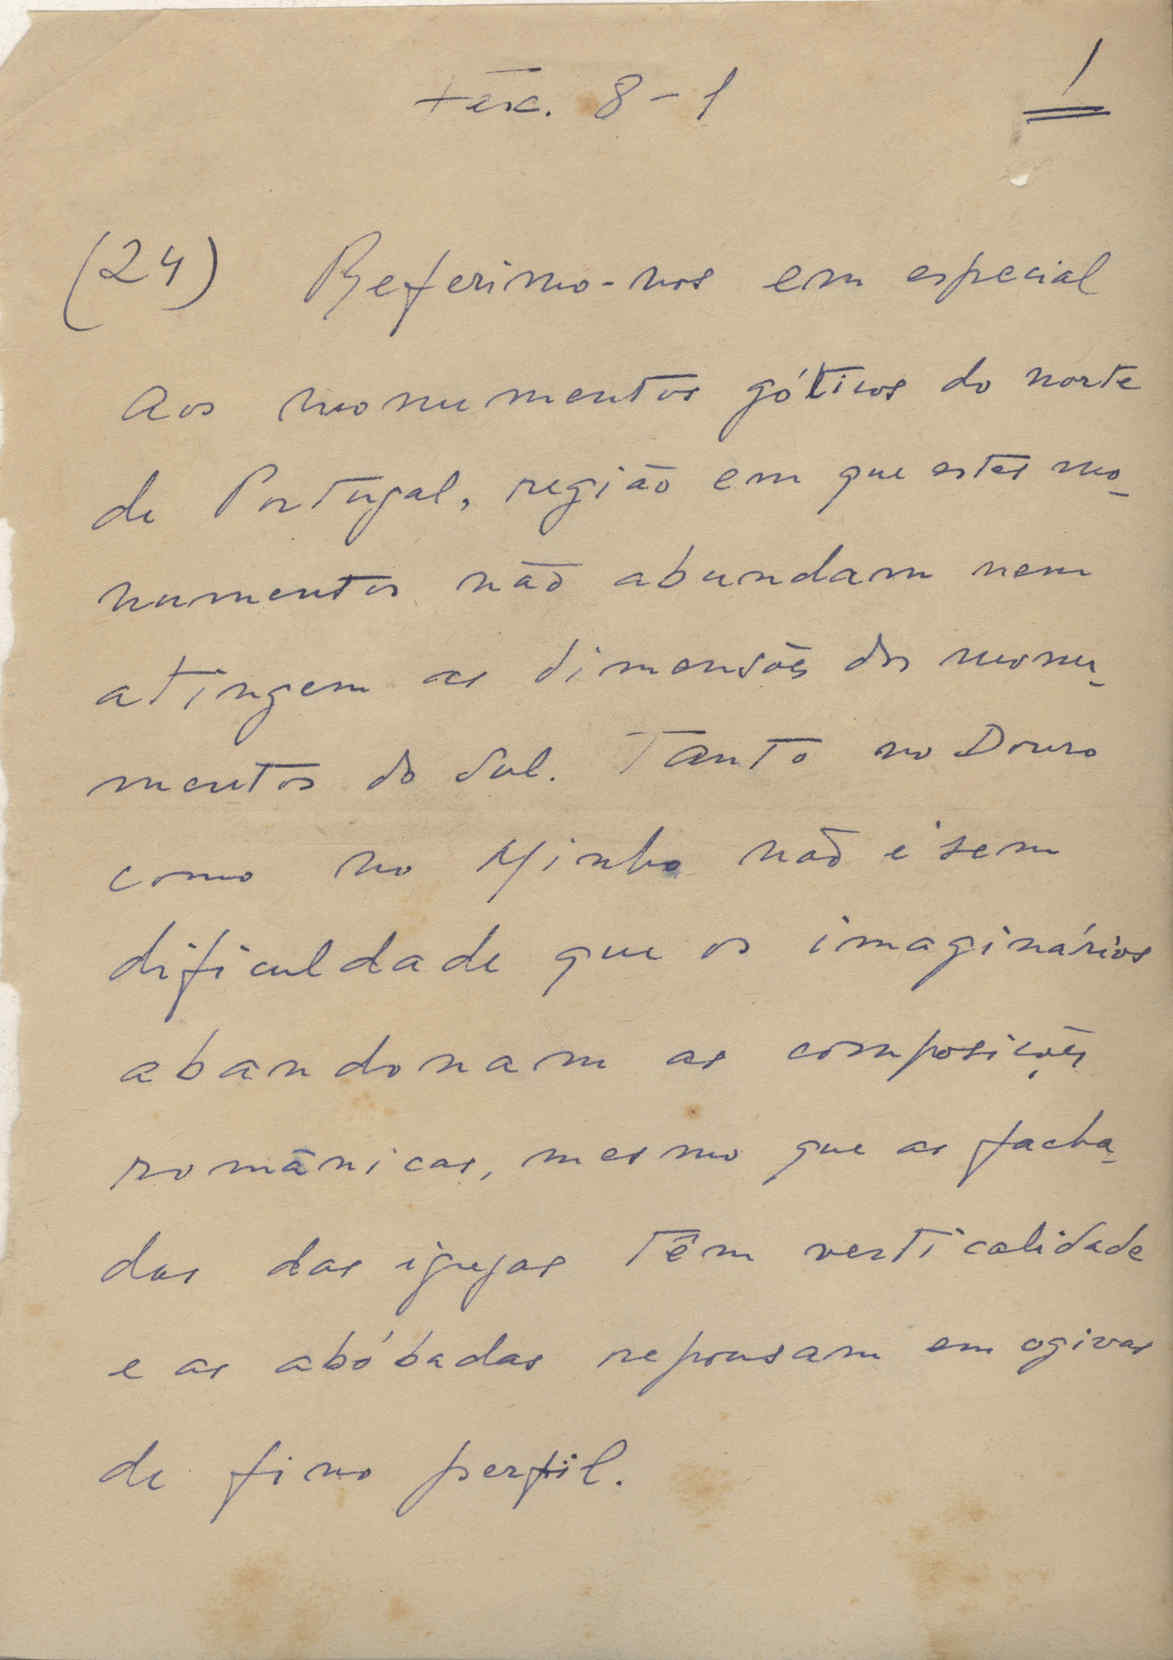 Fasc. 8-1
1
(24) Referimo-nos em especial
Aos monumentos góticos do norte
de Portugal, região em que estes mo-
numentos não abundam nem
atingem as dimensões dos monu-
mentos do Sul. Tanto no Douro
como no Minho não é sem
dificuldade que os imaginários
abandonam as composições
românicas, mesmo que as facha-
das das igrejas têm verticalidade
e as abóbadas repousam em ogivas
de fino perfil.